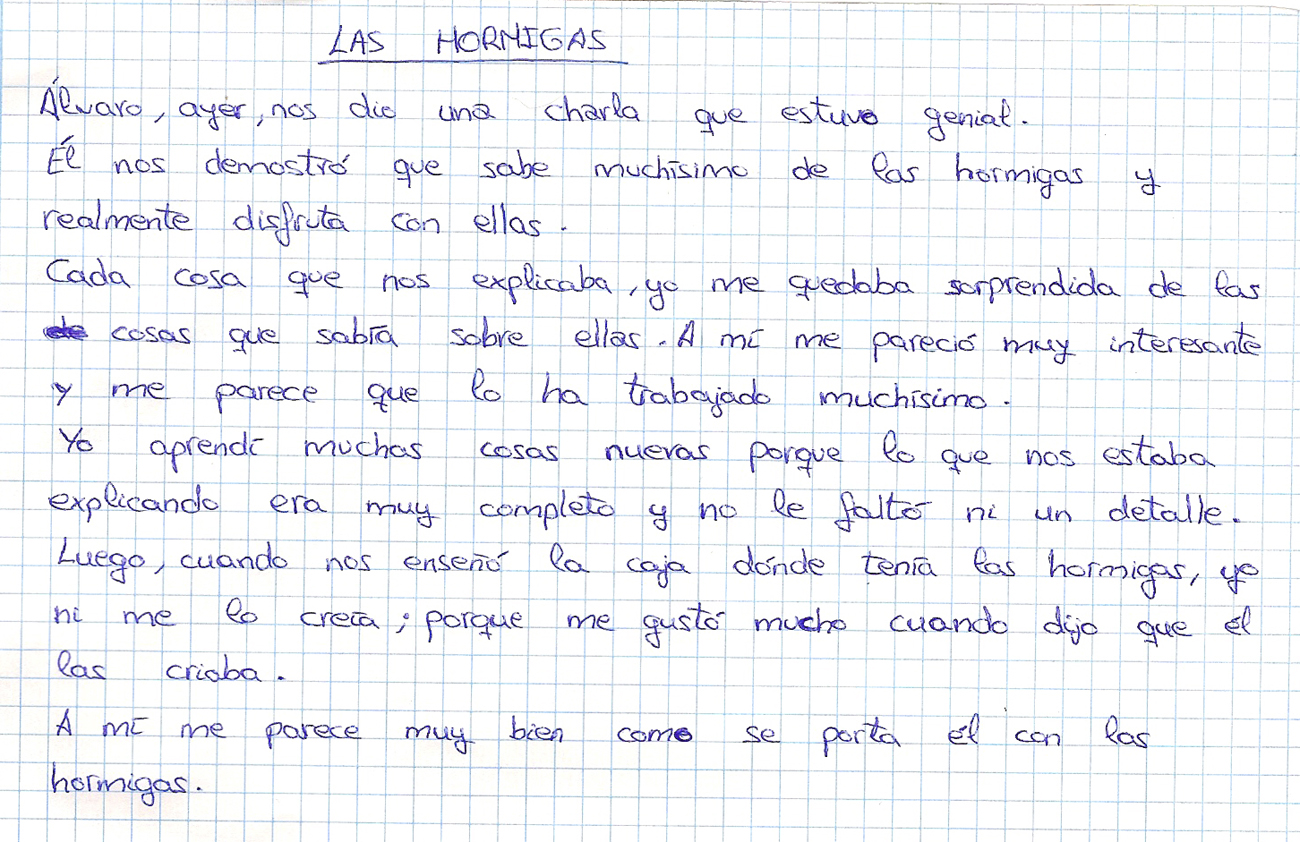 LAS HORMIGAS
Álvaro, ayer, nos dio una charla que estuvo genial.
Él nos demostró que sabe muchísimo de las hormigas y
realmente disfruta con ellas.
Cada cosa que nos explicaba, yo me quedaba sorprendida de las
cosas que sabía sobre ellas. A mí me pareció muy interesante
y me parece que lo ha trabajado muchísimo.
Yo aprendí muchas cosas nuevas porque lo que nos estaba
explicando era muy completo y no le faltó ni un detalle.
Luego, cuando nos enseñó la caja dónde tenía las hormigas, yo
ni me lo creía; porque me gustó mucho cuando dijo que él
las criaba.
A mí me parece muy bien como se porta él con las
hormigas.